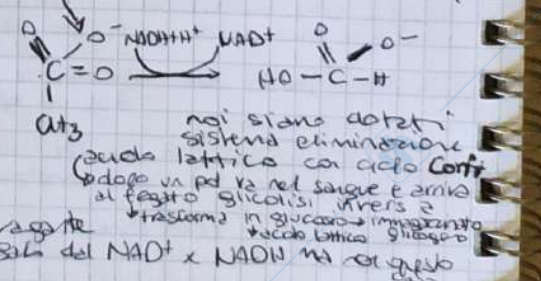 O O⁻ NADH+H⁺ NAD⁺ O O⁻
C=O HO-C-H
CH3
noi siamo dotati
sistema eliminazione
acido lattico con ciclo Cori
dopo un po' va nel sangue e arriva
al fegato glicolisi inversa
trasforma in glucosio → immagazzinato
acido lattico glicogeno
del NAD⁺ x NADH ma con questo